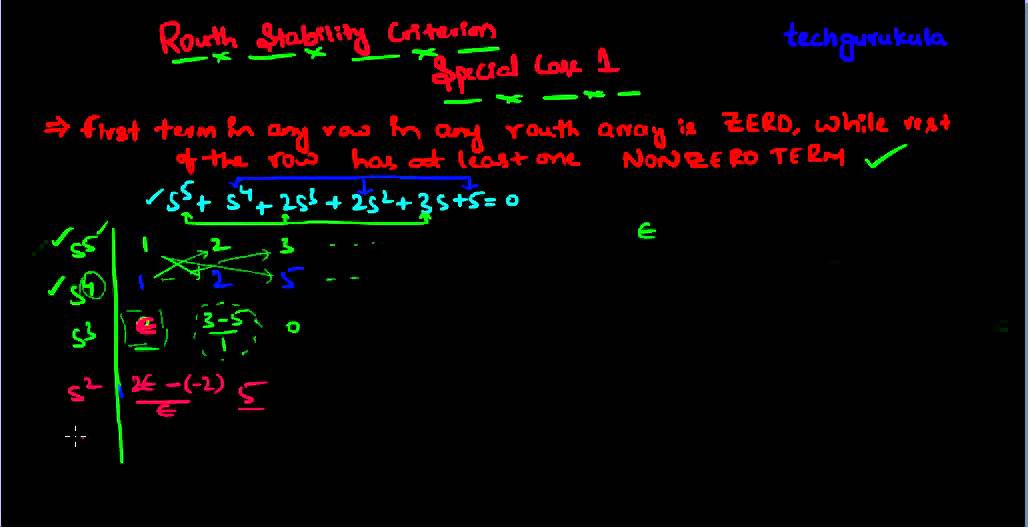 Routh Stability Criterion
techgurukula
Special Case 1
⇒ first term in any row in any routh array is ZERO, while rest
of the row has at least one NONZERO TERM ✓
✓ s⁵ + s⁴ + 2s³ + 2s² + 3s + 5 = 0
∈
✓ s⁵ 1 2 3 ....
✓ s⁴ 1 2 5 - -
s³ ∈ (3-5)/1 0
s² (2∈ - (-2))/∈ 5